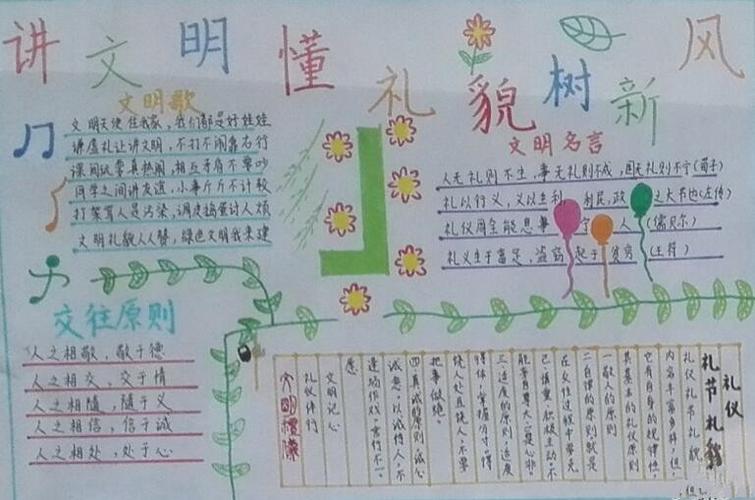 讲文明懂礼貌树新风
文明歌
文明天使在我家，我们都是好娃娃
谦虚礼让讲文明，不打不闹靠右行
课间玩耍真热闹，相互矛盾不要吵
同学之间讲友谊，小事斤斤不计较
打架骂人是污染，调皮捣蛋讨人烦
文明礼貌人人赞，绿色文明我来建
文明名言
人无礼则不生，事无礼则不成，国无礼则不宁(荀子)
礼以行义，义以生利 利民，政 之大节也(左传)
礼仪周全能息事宁人(儒贝尔)
礼义生于富足，盗窃起于贫穷(王符)
交往原则
人之相敬，敬于德
人之相交，交于情
人之相随，随于义
人之相信，信于诚
人之相处，处于心
礼仪
礼节礼貌
礼仪礼节礼貌
内容丰富多样，但
它有自身的规律性，
其基本的礼仪原则
一敬人的原则
二自律的原则，就是
在交往过程中要克
己、慎重、积极主动、不
三适度的原则，适度
得体，掌握分寸
饶人处且饶人，不要
把事做绝。
四真诚的原则，诚心
诚意，以诚待人，不
逢场作戏，言行不一。
文明记心
礼仪伴行